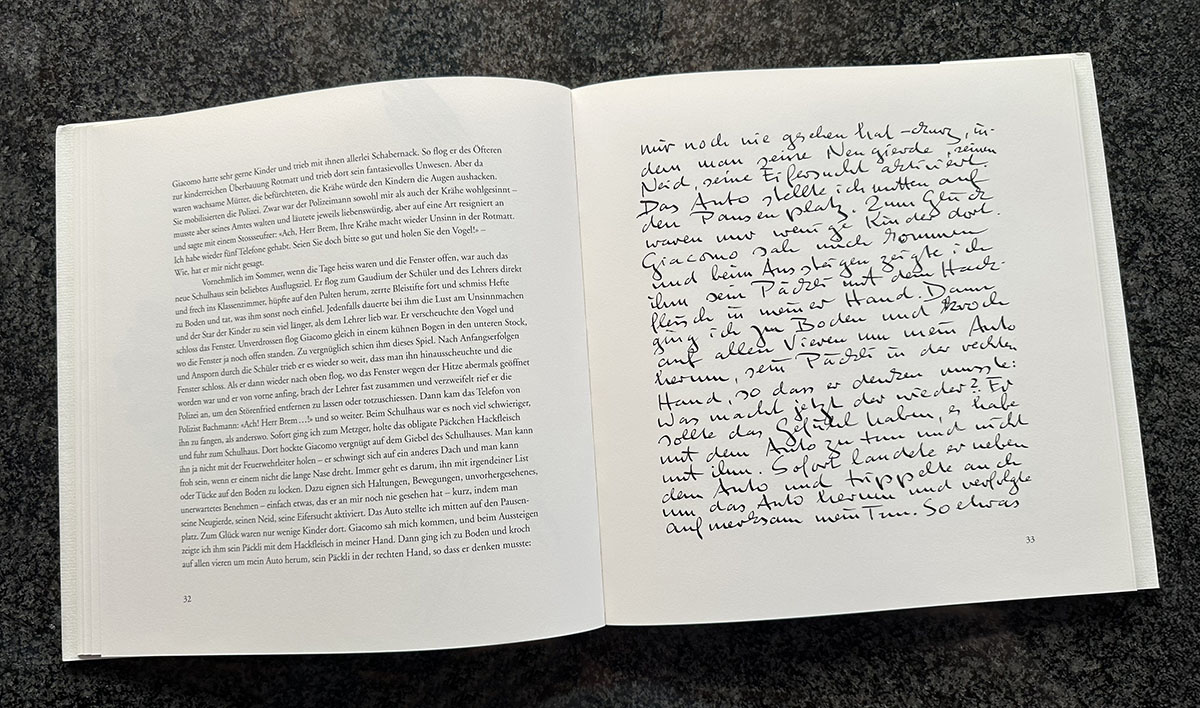 Giacomo hatte sehr gerne Kinder und trieb mit ihnen allerlei Schabernack. So flog er des Öfteren
zur kinderreichen Überbauung Rotmatt und trieb dort sein fantasievolles Unwesen. Aber da
waren wachsame Mütter, die befürchteten, die Krähe würde den Kindern die Augen aushacken.
Sie mobilisierten die Polizei. Zwar war der Polizeimann sowohl mir als auch der Krähe wohlgesinnt –
musste aber seines Amtes walten und läutete jeweils liebenswürdig, aber auf eine Art resigniert an
und sagte mit einem Stosseufzer: «Ach, Herr Brem, Ihre Krähe macht wieder Unsinn in der Rotmatt.
Ich habe wieder fünf Telefone gehabt. Seien Sie doch bitte so gut und holen Sie den Vogel!» –
Wie, hat er mir nicht gesagt.
Vornehmlich im Sommer, wenn die Tage heiss waren und die Fenster offen, war auch das
neue Schulhaus sein beliebtes Ausflugsziel. Er flog zum Gaudium der Schüler und des Lehrers direkt
und frech ins Klassenzimmer, hüpfte auf den Pulten herum, zerrte Bleistifte fort und schmiss Hefte
zu Boden und tat, was ihm sonst noch einfiel. Jedenfalls dauerte bei ihm die Lust am Unsinnmachen
und der Star der Kinder zu sein viel länger, als dem Lehrer lieb war. Er verscheuchte den Vogel und
schloss das Fenster. Unverdrossen flog Giacomo gleich in einem kühnen Bogen in den unteren Stock,
wo die Fenster ja noch offen standen. Zu vergnüglich schien ihm dieses Spiel. Nach Anfangserfolgen
und Ansporn durch die Schüler trieb er es wieder so weit, dass man ihn hinausscheuchte und die
Fenster schloss. Als er dann wieder nach oben flog, wo das Fenster wegen der Hitze abermals geöffnet
worden war und er von vorne anfing, brach der Lehrer fast zusammen und verzweifelt rief er die
Polizei an, um den Störenfried entfernen zu lassen oder totzuschiessen. Dann kam das Telefon von
Polizist Bachmann: «Ach! Herr Brem…!» und so weiter. Beim Schulhaus war es noch viel schwieriger,
ihn zu fangen, als anderswo. Sofort ging ich zum Metzger, holte das obligate Päckchen Hackfleisch
und fuhr zum Schulhaus. Dort hockte Giacomo vergnügt auf dem Giebel des Schulhauses. Man kann
ihn ja nicht mit der Feuerwehrleiter holen – er schwingt sich auf ein anderes Dach und man kann
froh sein, wenn er einem nicht die lange Nase dreht. Immer geht es darum, ihn mit irgendeiner List
oder Tücke auf den Boden zu locken. Dazu eignen sich Haltungen, Bewegungen, unvorhergesehenes,
unerwartetes Benehmen – einfach etwas, das er an mir noch nie gesehen hat – kurz, indem man
seine Neugierde, seinen Neid, seine Eifersucht aktiviert. Das Auto stellte ich mitten auf den Pausen-
platz. Zum Glück waren nur wenige Kinder dort. Giacomo sah mich kommen, und beim Aussteigen
zeigte ich ihm sein Päckli mit dem Hackfleisch in meiner Hand. Dann ging ich zu Boden und kroch
auf allen vieren um mein Auto herum, sein Päckli in der rechten Hand, so dass er denken musste:
32
mir noch nie gesehen hat – kurz, in-
dem man seine Neugierde, seinen
Neid, seine Eifersucht aktiviert.
Das Auto stellte ich mitten auf
den Pausenplatz. Zum Glück
waren nur wenige Kinder dort.
Giacomo sah mich kommen
und beim Aussteigen zeigte ich
ihm sein Päckli mit dem Hack-
fleisch in meiner Hand. Dann
ging ich zu Boden und kroch
auf allen Vieren um mein Auto
herum, sein Päckli in der rechten
Hand, so dass er denken musste:
Was macht jetzt der wieder? Er
sollte das Gefühl haben, es habe
mit dem Auto zu tun und nicht
mit ihm. Sofort landete er neben
dem Auto und trippelte auch
um das Auto herum und verfolgte
aufmerksam mein Tun. So etwas
33